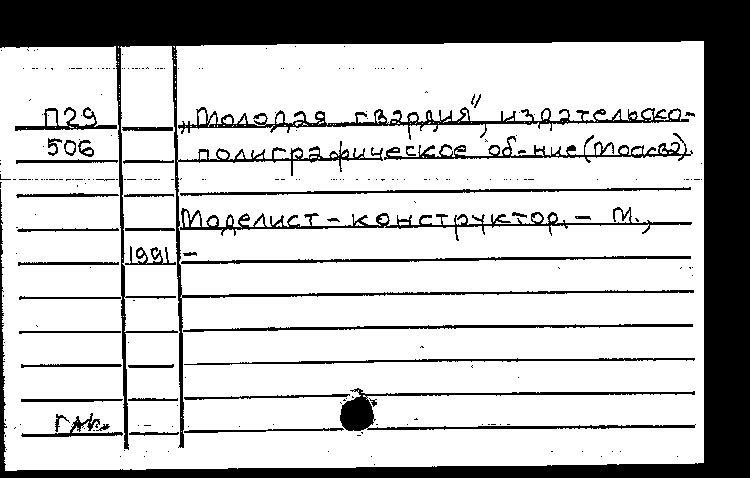 П29 „Молодая гвардия", издательско-
506 полиграфическое об-ние (Москва).
Моделист-конструктор. - М.,
1991 -